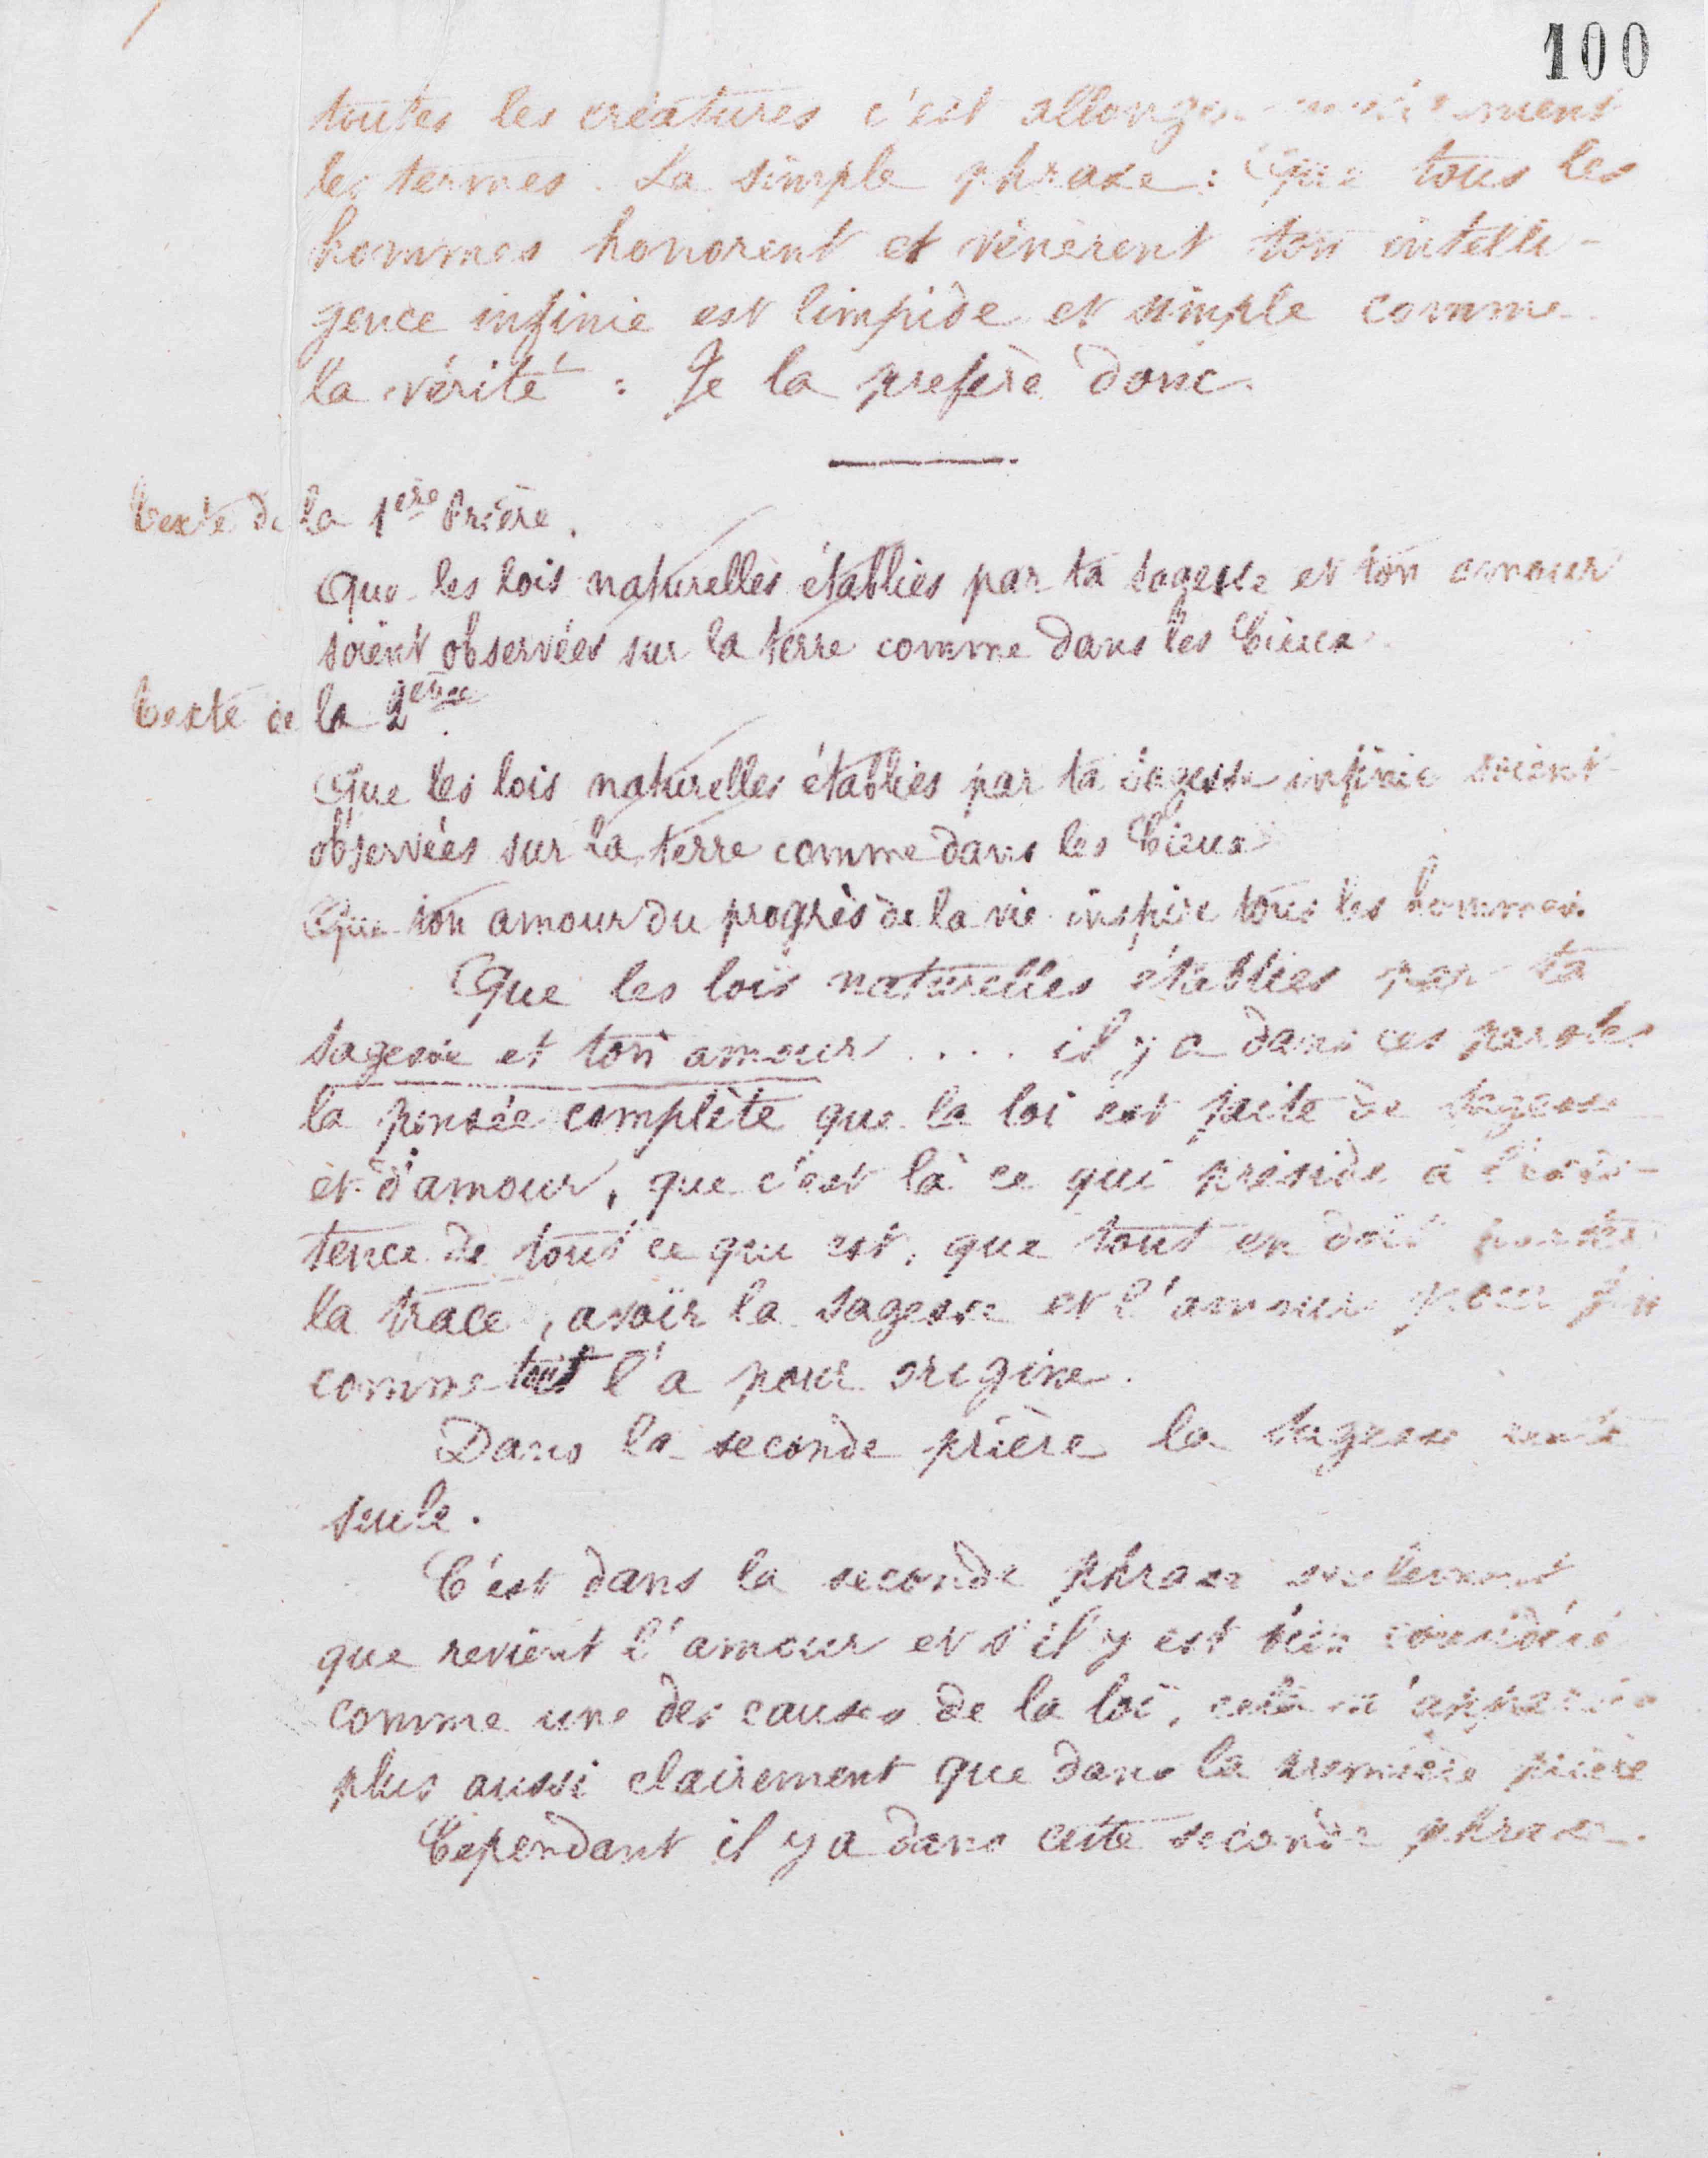 100
toutes les créatures c'est allonger
les termes. La simple phrase : Que tous les
hommes honorent et vénèrent ton intelli-
gence infinie est limpide et simple comme
la vérité : Je la prefère donc.
Texte de la 1ère Prière.
Que les lois naturelles établies par ta sagesse et ton amour
soient observées sur la terre comme dans les Cieux.
Texte de la 2ème.
Que les lois naturelles établies par ta sagesse infinie soient
observées sur la terre comme dans les Cieux
Que ton amour du progrès de la vie inspire tous les hommes.
Que les lois naturelles établies par ta
sagesse et ton amour .... il y a dans ces paroles
la pensée complète que la loi est faite de sagesse
et d'amour, que c'est là ce qui préside à l'exis-
tence de tout ce qui est, que tout en doit porter
la trace, avoir la sagesse et l'amour pour fin
comme tout l'a pour origine.
Dans la seconde prière la sagesse reste
seule.
C'est dans la seconde phrase seulement
que revient l'amour et s'il y est bien considéré
comme une des causes de la loi, cela n'apparaît
plus aussi clairement que dans la première prière
Cependant il y a dans cette seconde phrase